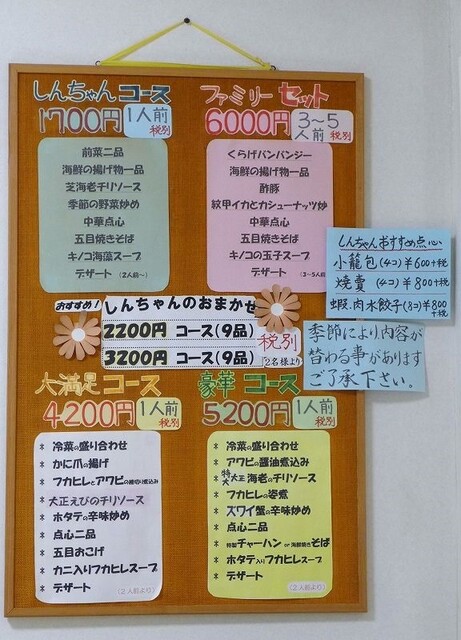 しんちゃん コース
1700円 1人前 税別
前菜二品
海鮮の揚げ物一品
芝海老チリソース
季節の野菜炒め
中華点心
五目焼きそば
キノコ海藻スープ
デザート (2人前〜)
ファミリー セット
6000円 3〜5人前 税別
くらげバンバンジー
海鮮の揚げ物一品
酢豚
紋甲イカとカシューナッツ炒め
中華点心
五目焼きそば
キノコの玉子スープ
デザート (3〜5人前)
おすすめ! しんちゃんのおまかせ
2200円 コース(9品)
3200円 コース(9品)
税別
(2名様より)
大満足 コース
4200円 1人前 税別
* 冷菜の盛り合わせ
* かに爪の揚げ
* フカヒレとアワビの醤油煮込み
* 大正えびのチリソース
* ホタテの辛味炒め
* 点心二品
* 五目おこげ
* カニ入りフカヒレスープ
* デザート (2人前より)
豪華 コース
5200円 1人前 税別
* 冷菜の盛り合わせ
* アワビの醤油煮込み
* 特大大正海老のチリソース
* フカヒレの姿煮
* ズワイ蟹の辛味炒め
* 点心二品
* 特製チャーハン or 海鮮焼きそば
* ホタテ入りフカヒレスープ
* デザート (2人前より)
しんちゃんおすすめ点心
小籠包(4コ)¥600+税
焼売(4コ)¥800+税
蝦.肉水餃子(8コ)¥800+税
季節により、内容が
替わる事があります
ご了承下さい。